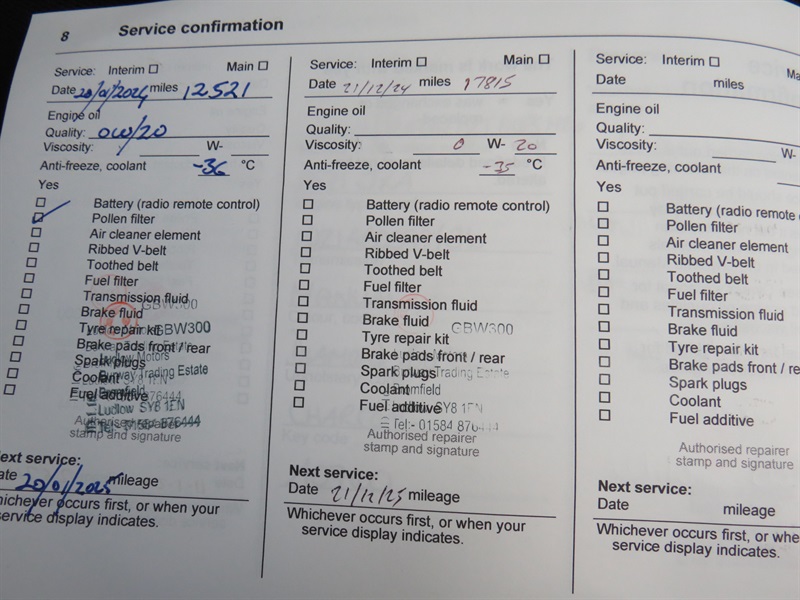 8 Service confirmation
Service: Interim ☐ Main ☐
Date 20/01/2024 miles 12521
Engine oil
Quality: 0W/20
Viscosity: W-
Anti-freeze, coolant -36 °C
Yes
☐ Battery (radio remote control)
☑ Pollen filter
☐ Air cleaner element
☐ Ribbed V-belt
☐ Toothed belt
☐ Fuel filter
☐ Transmission fluid
☐ Brake fluid
☐ Tyre repair kit
☐ Brake pads front / rear
☐ Spark plugs
☐ Coolant
☐ Fuel additive
GBW300
Ludlow Motors
Trading Estate
Bromfield
Ludlow SY8 1FN
Tel:- 01584 876444
Authorised repairer
stamp and signature
Next service:
Date 20/01/2025 mileage
Whichever occurs first, or when your
service display indicates.
Service: Interim ☐ Main ☐
Date 21/12/24 miles 17815
Engine oil
Quality:
Viscosity: 0 W- 20
Anti-freeze, coolant -35 °C
Yes
☐ Battery (radio remote control)
☐ Pollen filter
☐ Air cleaner element
☐ Ribbed V-belt
☐ Toothed belt
☐ Fuel filter
☐ Transmission fluid
☐ Brake fluid
☐ Tyre repair kit
☐ Brake pads front / rear
☐ Spark plugs
☐ Coolant
☐ Fuel additive
GBW300
Trading Estate
Bromfield
SY8 1FN
Tel:- 01584 876444
Authorised repairer
stamp and signature
Next service:
Date 21/12/25 mileage
Whichever occurs first, or when your
service display indicates.
Service: Interim ☐ Ma
Date miles
Engine oil
Quality:
Viscosity: W-
Anti-freeze, coolant
Yes
☐ Battery (radio remote
☐ Pollen filter
☐ Air cleaner element
☐ Ribbed V-belt
☐ Toothed belt
☐ Fuel filter
☐ Transmission fluid
☐ Brake fluid
☐ Tyre repair kit
☐ Brake pads front / re
☐ Spark plugs
☐ Coolant
☐ Fuel additive
Authorised repairer
stamp and signature
Next service:
Date mileage
Whichever occurs first, or whe
service display indicates.